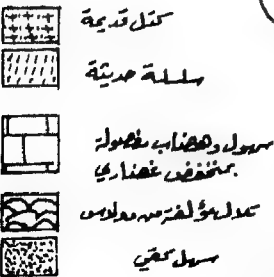 كتل قديمة
سلسلة حديثة
سهول وهضاب مفصولة
بمنخفض غضاري
تلال مؤلفة من مولاس
سهل لحقي